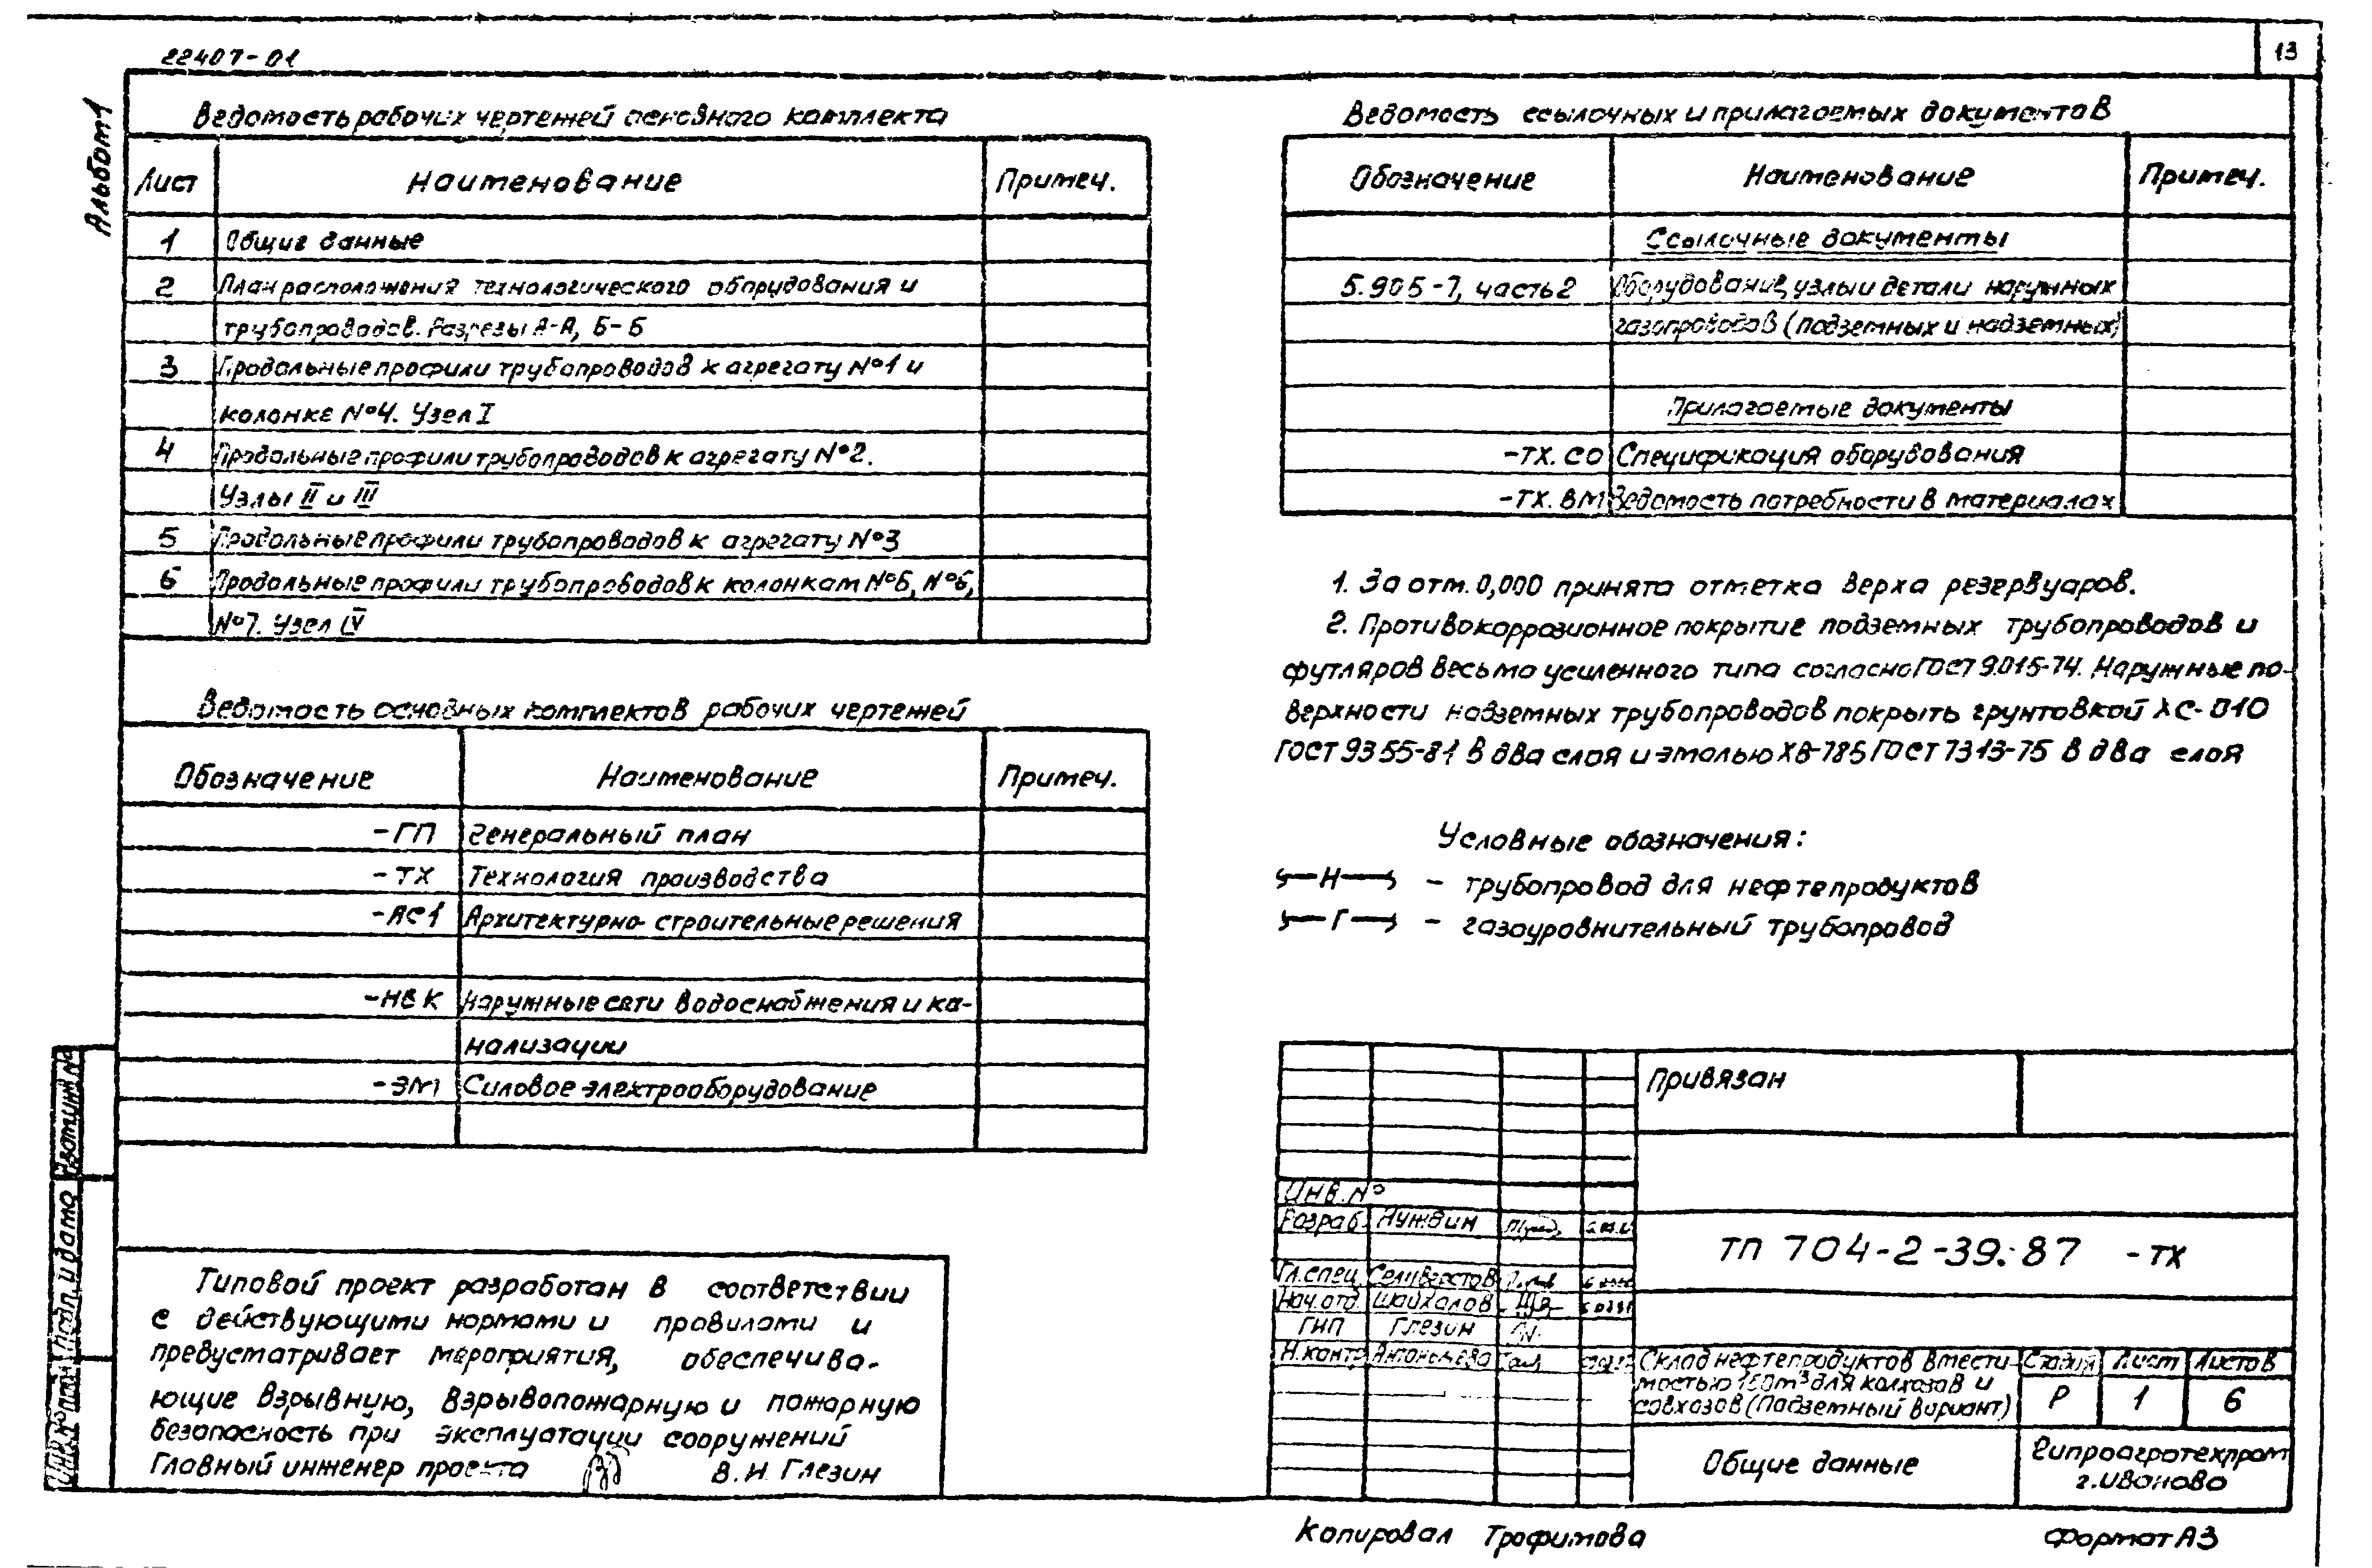 22407-01
13
Альбом 1
Ведомость рабочих чертежей основного комплекта
Лист Наименование Примеч.
1 Общие данные
2 План расположения технологического оборудования и
трубопроводов. Разрезы А-А, Б-Б
3 Продольные профили трубопроводов к агрегату №1 и
колонке №4. Узел I
4 Продольные профили трубопроводов к агрегату №2.
Узлы II и III
5 Продольные профили трубопроводов к агрегату №3
6 Продольные профили трубопроводов к колонкам №5, №6,
№7. Узел IV
Ведомость основных комплектов рабочих чертежей
Обозначение Наименование Примеч.
-ГП Генеральный план
-ТХ Технология производства
-АС1 Архитектурно-строительные решения
-НВК Наружные сети водоснабжения и ка-
нализации
-ЭМ1 Силовое электрооборудование
Типовой проект разработан в соответствии
с действующими нормами и правилами и
предусматривает мероприятия, обеспечива-
ющие взрывную, взрывопожарную и пожарную
безопасность при эксплуатации сооружений
Главный инженер проекта В.И. Глезин
Ведомость ссылочных и прилагаемых документов
Обозначение Наименование Примеч.
Ссылочные документы
5.905-7, часть 2 Оборудование, узлы и детали наружных
газопроводов (подземных и надземных)
Прилагаемые документы
-ТХ. СО Спецификация оборудования
-ТХ. ВМ Ведомость потребности в материалах
1. За отм. 0,000 принята отметка верха резервуаров.
2. Противокоррозионное покрытие подземных трубопроводов и
футляров весьма усиленного типа согласно ГОСТ 9.015-74. Наружные по-
верхности надземных трубопроводов покрыть грунтовкой ХС-010
ГОСТ 9355-81 в два слоя и эмалью ХВ-785 ГОСТ 7313-75 в два слоя
Условные обозначения:
Н - трубопровод для нефтепродуктов
Г - газоуровнительный трубопровод
Привязан
Инв. №
Разраб. Нуждин
Гл.спец. Селиверстов
Нач.отд. Шайхалов
ГИП Глезин
Н.контр
ТП 704-2-39.87 -ТХ
Склад нефтепродуктов вмести-
мостью 150м³ для колхозов и
совхозов (Подземный вариант)
Стадия Лист Листов
Р 1 6
Общие данные
Гипроагротехпром
г. Иваново
Взам.инв.№
Подп. и дата
Инв.№подл
Копировал Трофимова
Формат А3